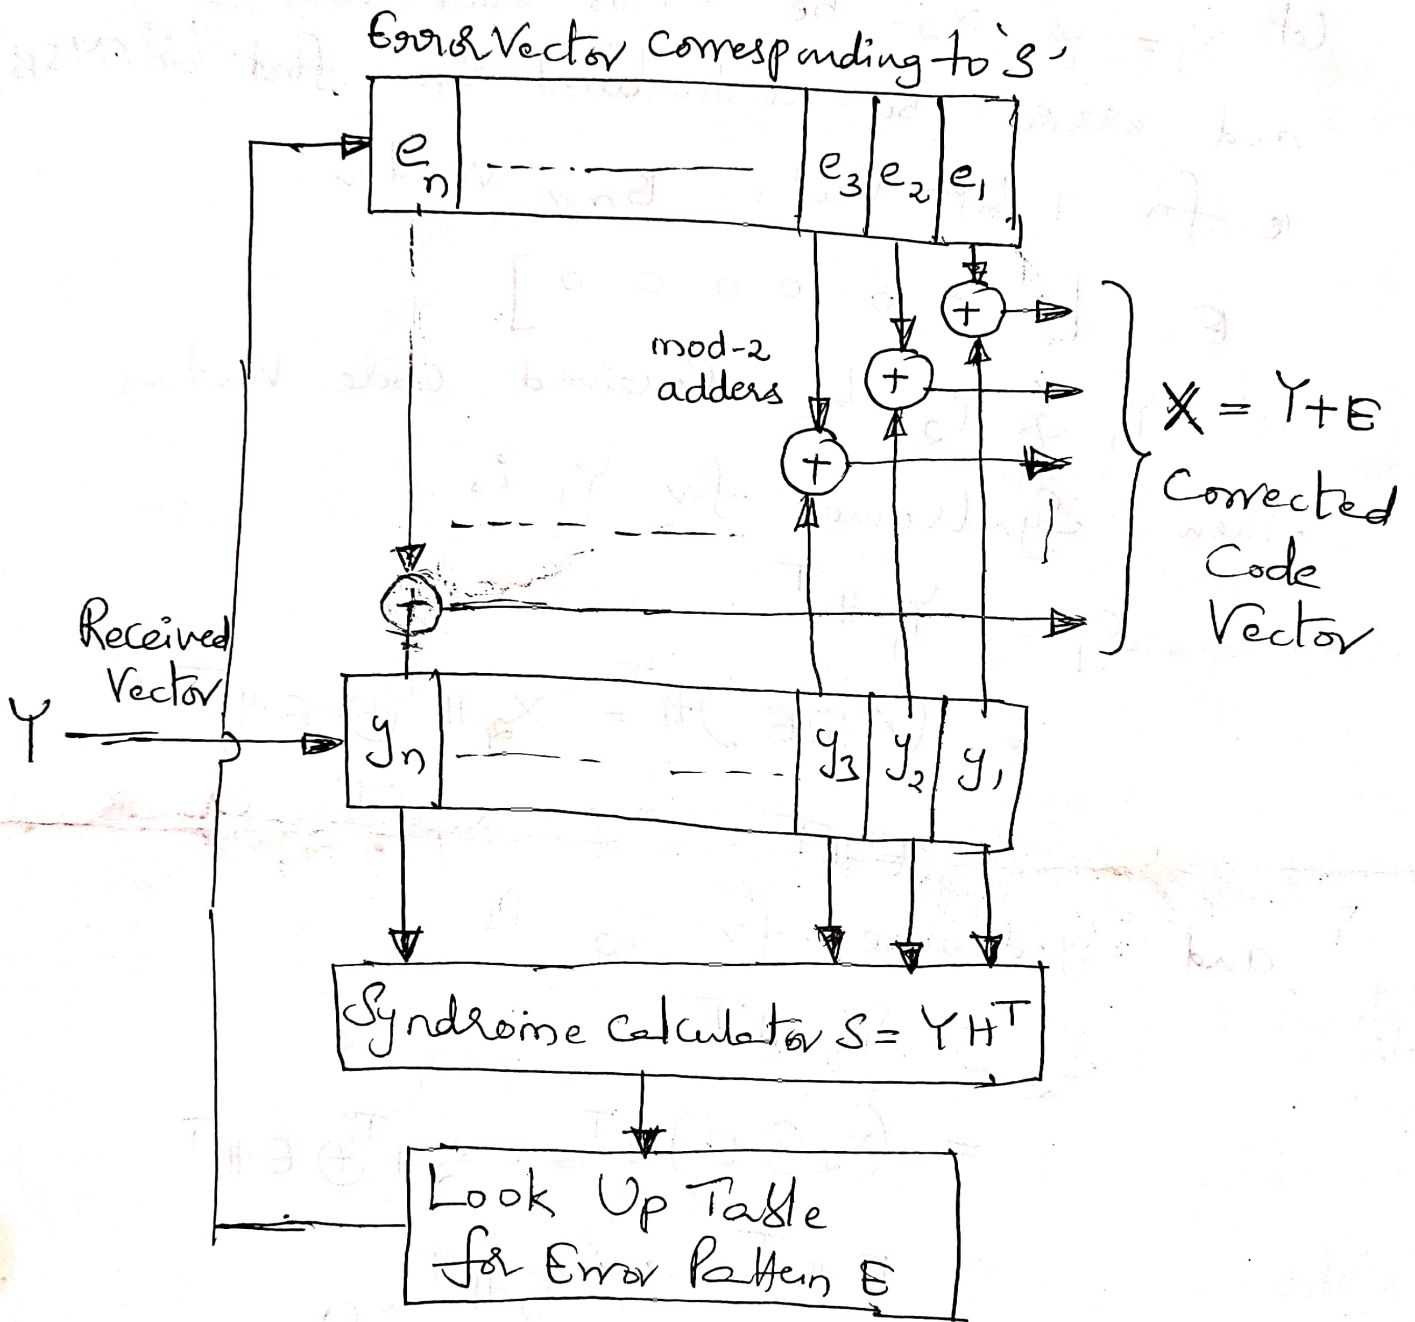 Error Vector Corresponding to 'S'
eₙ ---- e₃ e₂ e₁
+
mod-2
adders
+
+
X = Y+E
Corrected
Code
Vector
+
Received
Vector
Y
yₙ ---- y₃ y₂ y₁
Syndrome Calculator S = YHᵀ
Look Up Table
for Error Pattern E